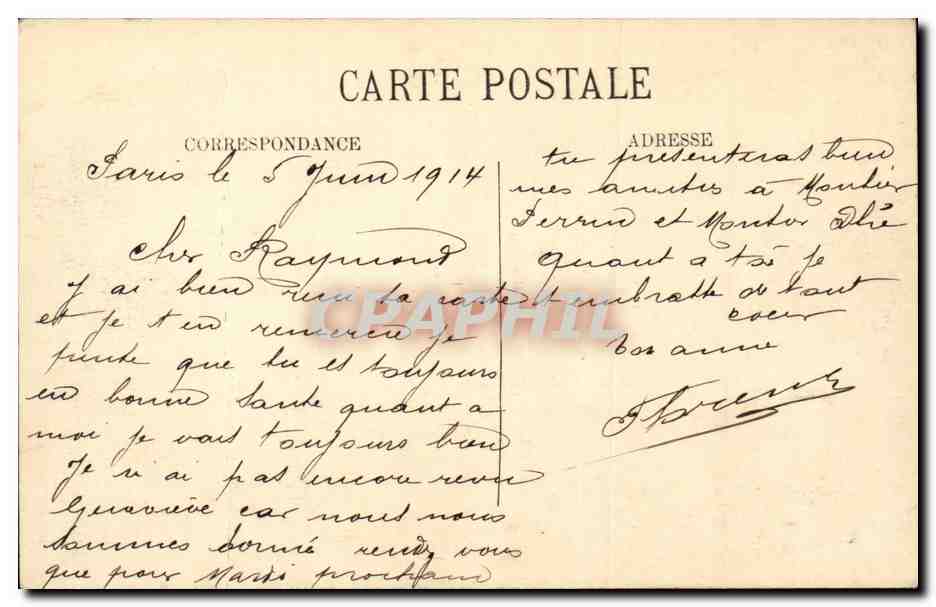 CARTE POSTALE
CORRESPONDANCE
Paris le 5 Juin 1914
Cher Raymond
J ai bien recu ta carte
et je t en remercie je
pense que tu es toujours
en bonne sante quant a
moi je vais toujours bien
Je n ai pas encore revu
Genevieve car nous nous
sommes donné rendez vous
que pour Mardi prochain
ADRESSE
tu presenteras bien
mes amities à
Perrin et
quant a toi je
t embrasse de tout
coeur
ton amie
CPAPHIL